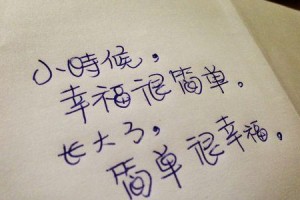 小時候，
幸福很簡单。
长大了，
簡单很幸福。